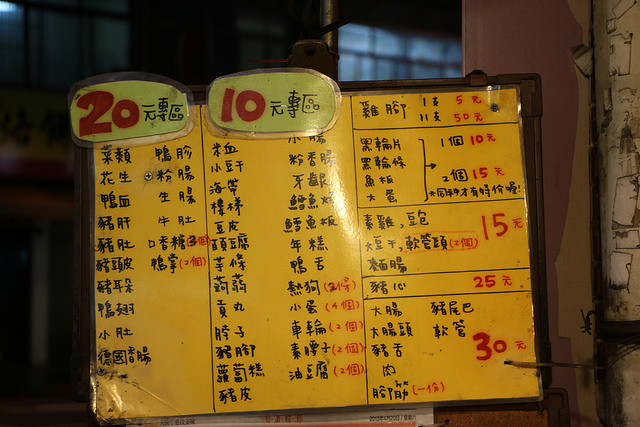 20元專區
菜類
花生
鴨血
豬肝
豬肚
豬頭皮
豬耳朵
鴨翅
小肚
德國香腸
鴨胗
粉腸
生腸
牛肚
口香糖(3個)
鴨掌(2個)
10元專區
米血
小豆干
海帶
豆皮
百頁豆腐
芋條
蒟蒻
貢丸
脖子
豬腳
蘿蔔糕
豬皮
小腸
粉香腸
牙齦
鱈魚丸
鱈魚板
年糕
鴨舌
熱狗(2條)
小蛋(4個)
車輪(2個)
素腰子(2個)
油豆腐(2個)
雞腳 1支 5元
11支 50元
黑輪片
黑輪條
魚板
大蛋
1個10元
2個15元
素雞,豆包
軟管頭(2個)
麵腸
15元
豬心 25元
大腸 豬尾巴
大腸頭 軟管
豬舌
肉
腳筋(一份)
30元